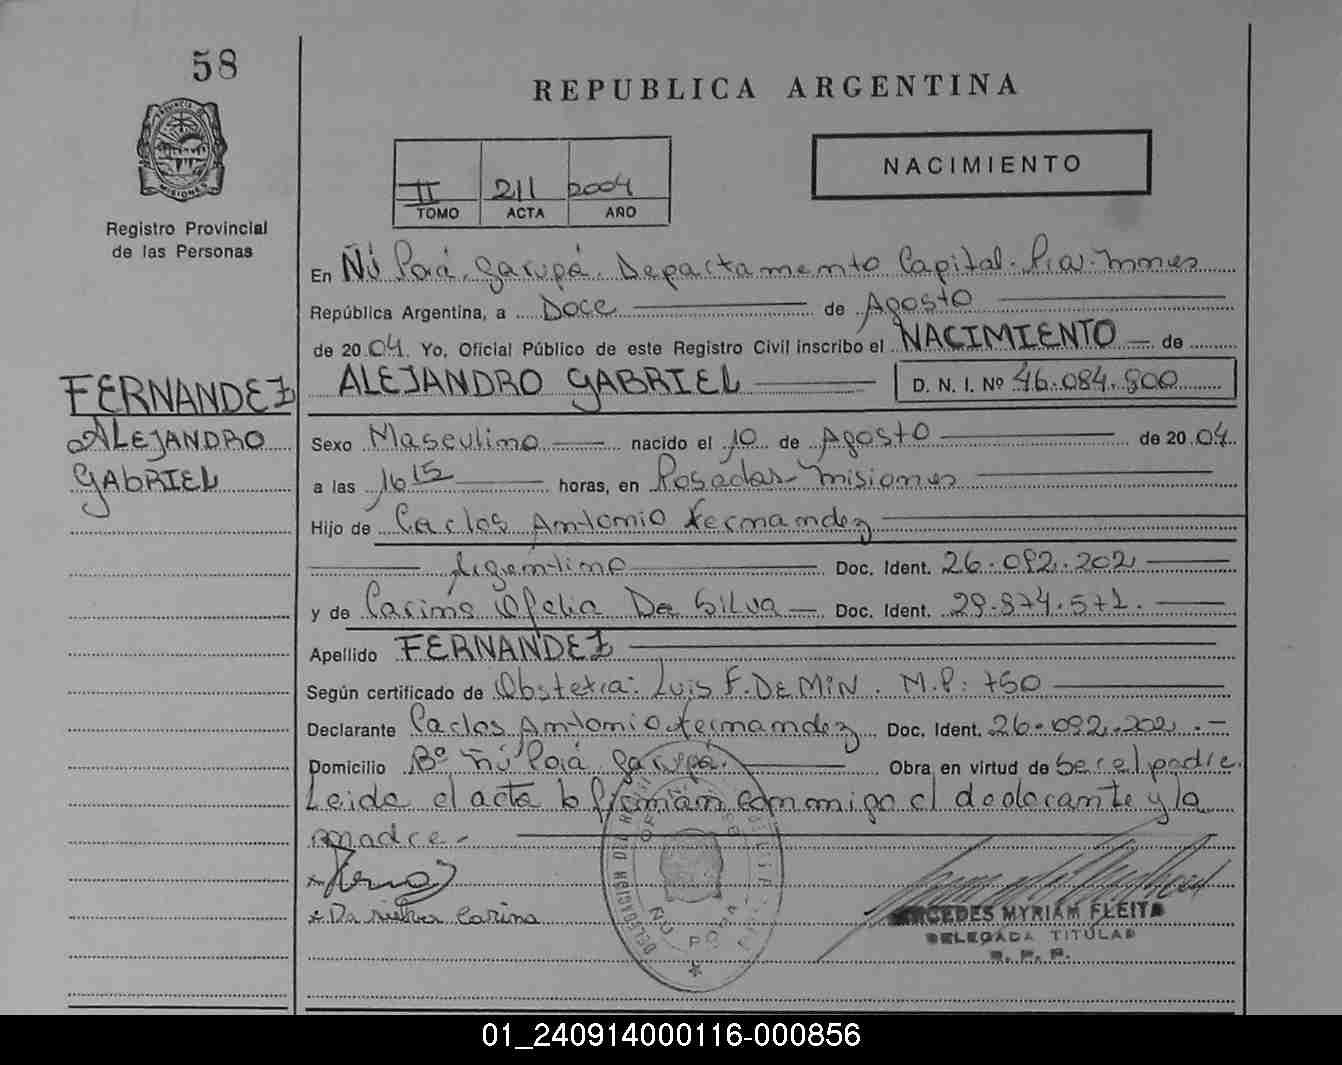 58
REPUBLICA ARGENTINA
PROVINCIA DE
MISIONES
Registro Provincial
de las Personas
II 211 2004
TOMO ACTA AÑO
NACIMIENTO
En Ñú Porá. Garupá. Departamento Capital. Pcia. Mnes
República Argentina, a Doce de Agosto
de 2004. Yo, Oficial Público de este Registro Civil inscribo el NACIMIENTO de
ALEJANDRO GABRIEL D. N. I. Nº 46.084.800
FERNANDEZ
ALEJANDRO
GABRIEL
Sexo Masculino nacido el 10 de Agosto de 2004.
a las 16 15 horas, en Posadas- Misiones
Hijo de Carlos Antonio Fernandez
Argentino Doc. Ident. 26.092.202
y de Carina Ofelia Da Silva Doc. Ident. 29.874.571.
Apellido FERNANDEZ
Según certificado de Obstetra: Luis F. DEMIN. M.P: 750
Declarante Carlos Antonio Fernandez Doc. Ident. 26.092.202.-
Domicilio Bº Ñú Porá Garupá. Obra en virtud de Ser el padre.
Leida el acta la firman conmigo el declarante y la
madre.-
Da Silva Carina
DELEGACION DEL REGISTRO
ÑU PORA
MERCEDES MYRIAM FLEITA
DELEGADA TITULAR
R. P. P.
01_240914000116-000856